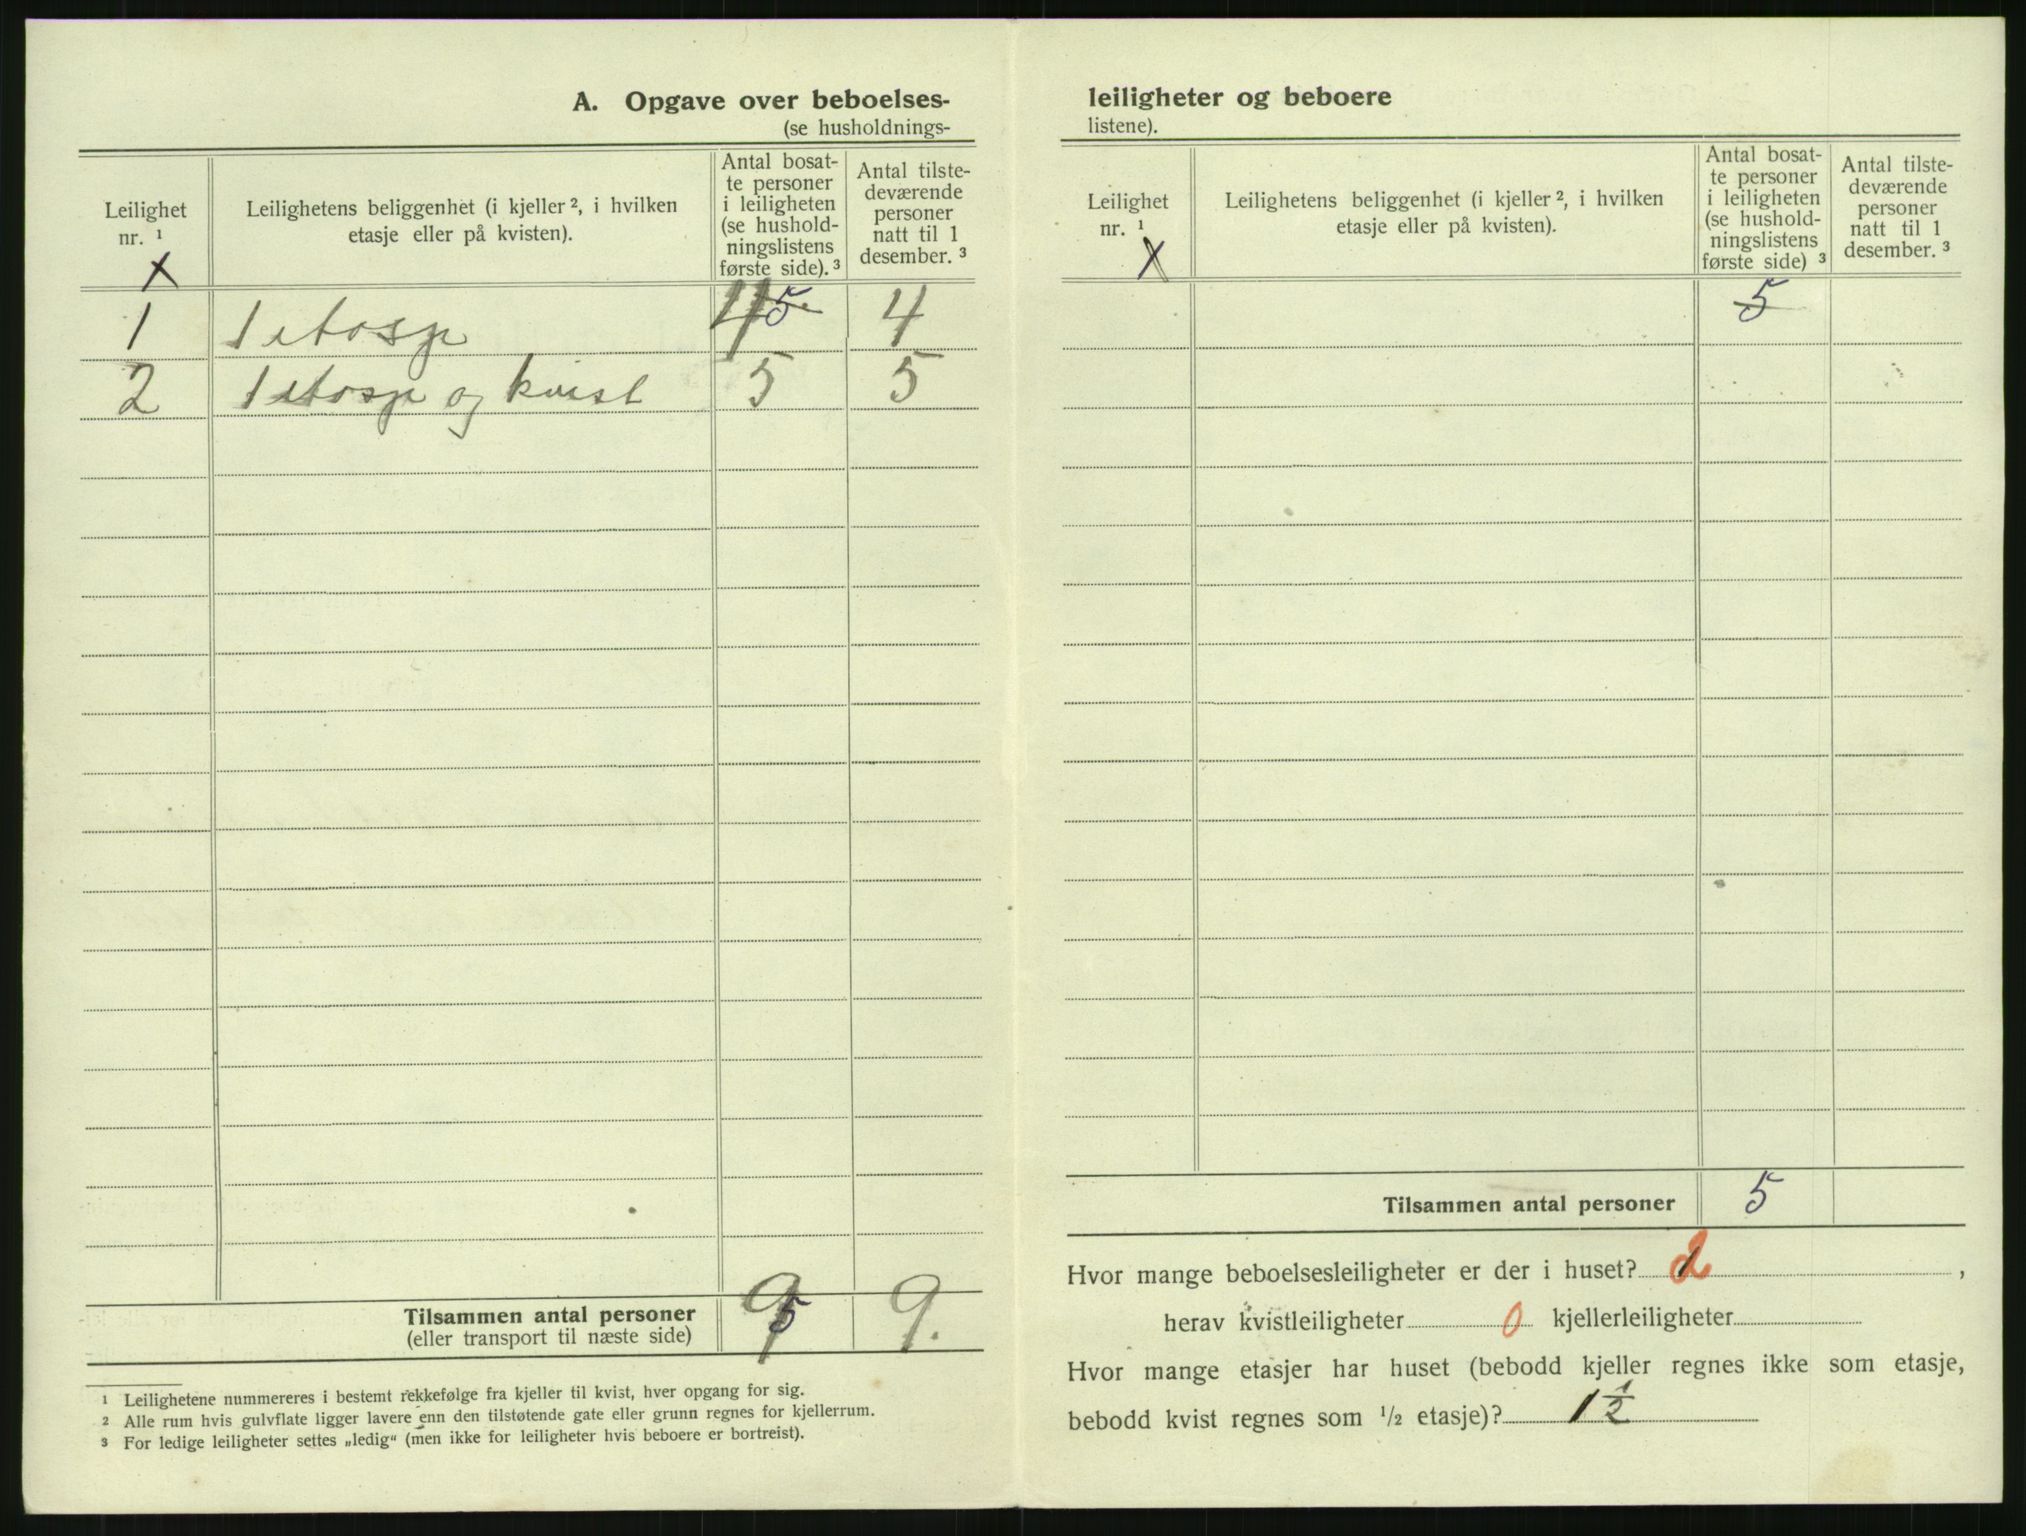 A. Opgave over beboelses-
(se husholdnings-
Leilighet
nr. ¹
X
Leilighetens beliggenhet (i kjeller ², i hvilken
etasje eller på kvisten).
Antal bosat-
te personer
i leiligheten
(se hushold-
ningslistens
første side). ³
Antal tilste-
deværende
personer
natt til 1
desember. ³
1 1 etasje 4 5 4
2 1 etasje og kvist 5 5
Tilsammen antal personer 9 5 9.
(eller transport til næste side)
¹ Leilighetene nummereres i bestemt rekkefølge fra kjeller til kvist, hver opgang for sig.
² Alle rum hvis gulvflate ligger lavere enn den tilstøtende gate eller grunn regnes for kjellerrum.
³ For ledige leiligheter settes „ledig“ (men ikke for leiligheter hvis beboere er bortreist).
leiligheter og beboere
listene).
Leilighet
nr. ¹
X
Leilighetens beliggenhet (i kjeller ², i hvilken
etasje eller på kvisten).
Antal bosat-
te personer
i leiligheten
(se hushold-
ningslistens
første side) ³
Antal tilste-
deværende
personer
natt til 1
desember. ³
5
Tilsammen antal personer 5
Hvor mange beboelsesleiligheter er der i huset? 2,
herav kvistleiligheter 0 kjellerleiligheter
Hvor mange etasjer har huset (bebodd kjeller regnes ikke som etasje,
bebodd kvist regnes som ½ etasje)? 1 ½